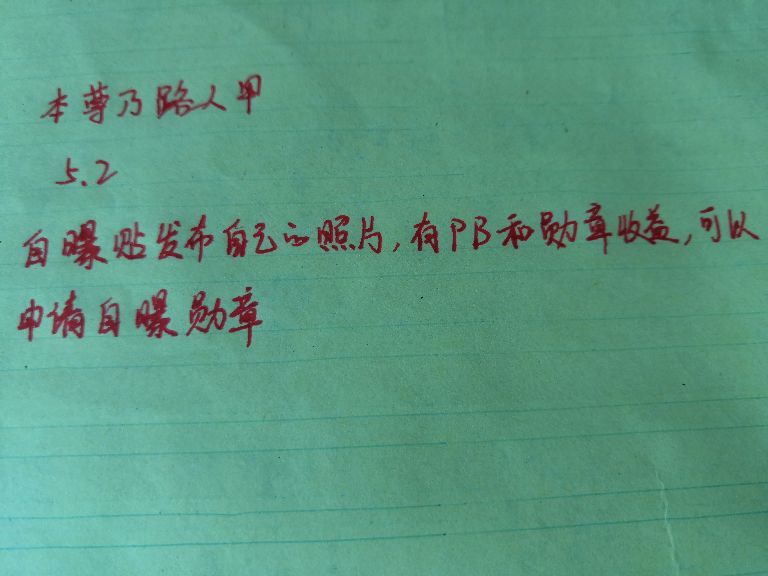 本尊乃路人甲
5.2
自曝贴发布自己的照片,有PB和勋章收益,可以
申请自曝勋章